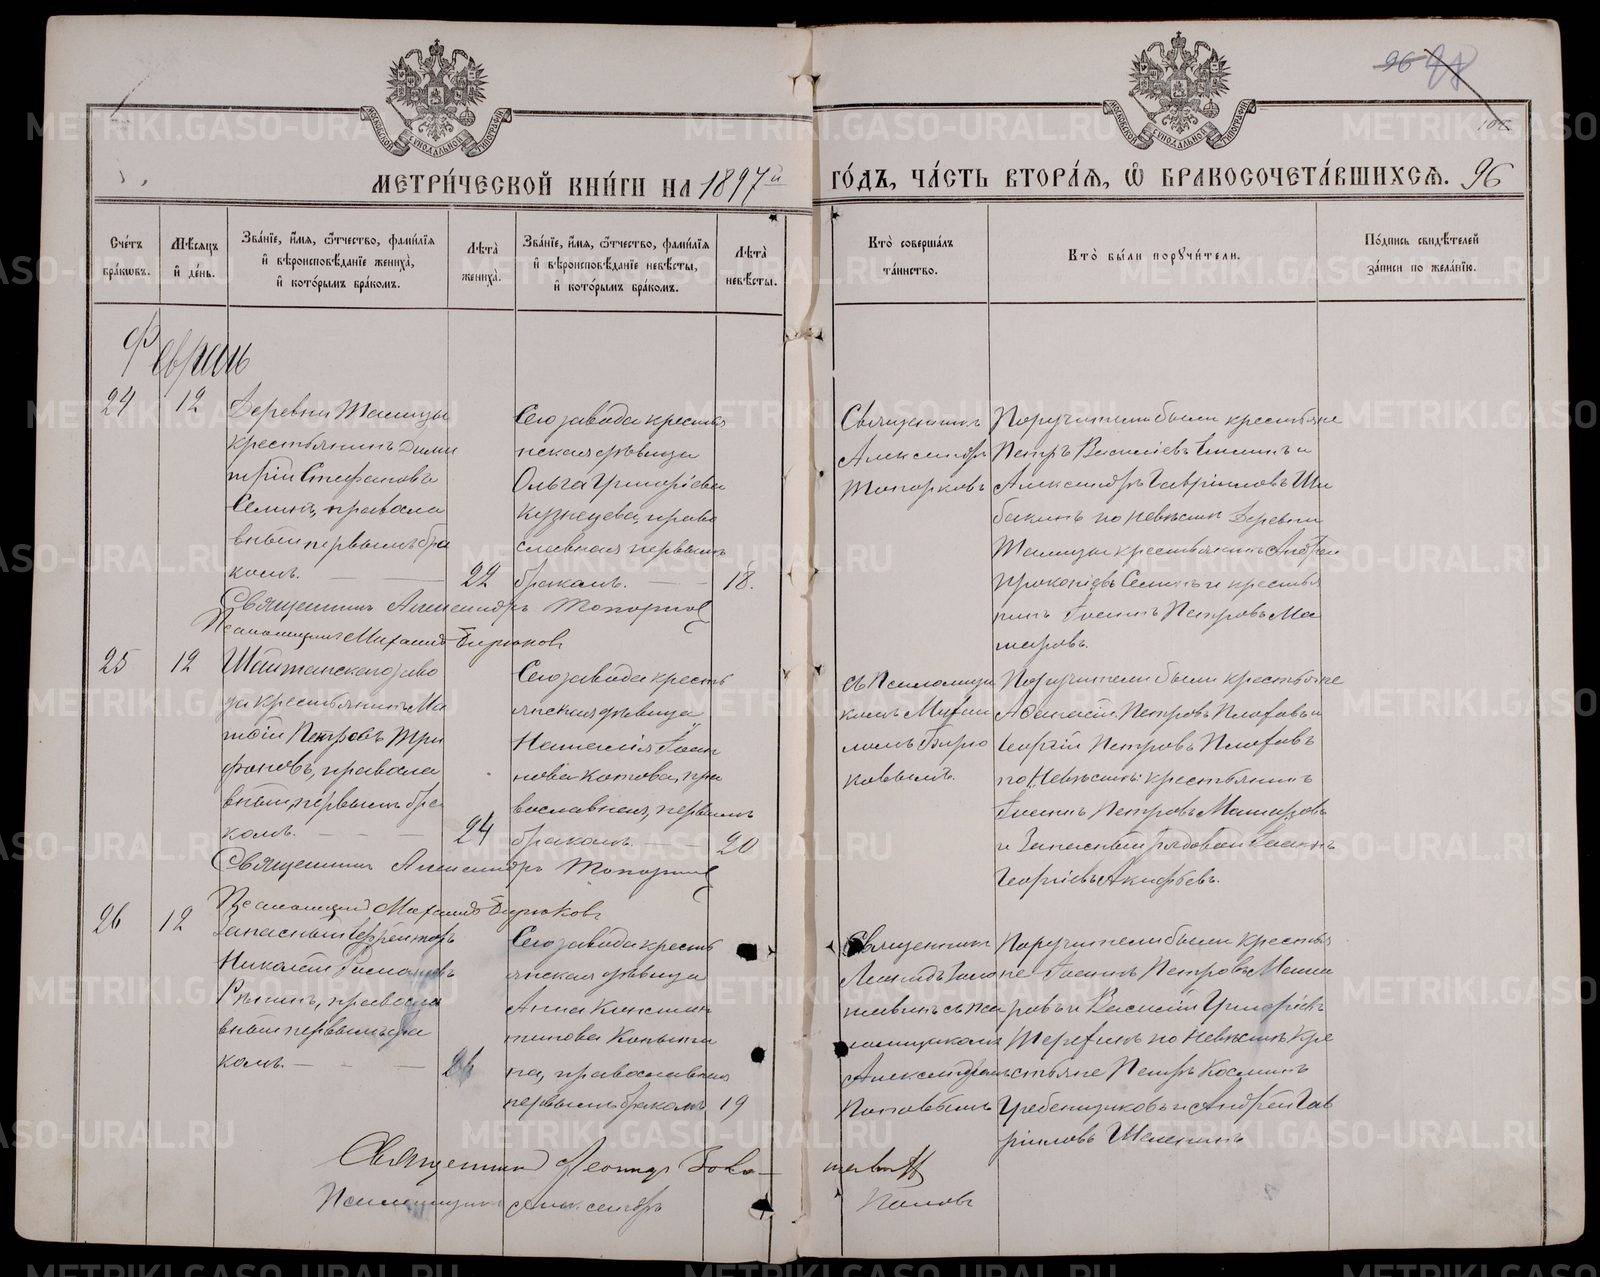 96 98
106
МОСКОВСКОЙ СѴНОДАЛЬНОЙ ТИПОГРАФІИ
МОСКОВСКОЙ СѴНОДАЛЬНОЙ ТИПОГРАФІИ
МЕТРИ́ЧЕСКОЙ КНИ́ГИ НА 1897й ГО́ДЪ, ЧА́СТЬ ВТОРА́Я, Ѽ БРАКОСОЧЕТА́ВШИХСЯ. 96
Сче́тъ бра́ковъ.
Мѣ́сяцъ и҆ де́нь.
Зва́нїе, и҆́мя, ѻ҆́тчество, фамил́їя и҆ вѣроисповѣ́данїе жениха̀, и҆ кото́рымъ бра́комъ.
Лѣта̀ жениха̀.
Зва́нїе, и҆́мя, ѻ҆́тчество, фамил́їя и҆ вѣроисповѣ́данїе невѣ́сты, и҆ кото́рымъ бра́комъ.
Лѣта̀ невѣ́сты.
Кто̀ соверша́лъ та́инство.
Кто̀ бы́ли поручи́тели.
По́дпись свидѣ́телей за́писи по жела́нїю.
Февраль
24
12
Деревни Талицы
крестьянинъ Дими
трій Стефановъ
Селинъ, правосла
вный первымъ бра
комъ.
22
Сего завода крестья
нская дѣвица
Ольга Григоріева
Кузнецева, право
славная первымъ
бракомъ.
18.
Священникъ
Александръ
Топорковъ
Поручители были крестьяне
Петръ Василіевъ и
Александръ Гавріиловъ Ши
бакинъ по невѣстѣ Деревни
Талицы крестьянинъ Андрей
Прокопіевъ Селинъ и крестья
нинъ Іоаннъ Петровъ Ма
таровъ.
Священникъ Александръ Топорковъ
Псаломщикъ Михаилъ Бирюковъ
25
12
Шайтанскаго заво
да крестьянинъ Ма
тѳій Петровъ Три
фоновъ, правосла
вный, первымъ бра
комъ.
24
Сего завода кресть
янская дѣвица
Наталія Іоан
нова Котова, пра
вославная, первымъ
бракомъ.
20
съ Псаломщи
комъ Михаи
ломъ Бирю
ковымъ.
Поручители были крестьяне
Аѳанасій Петровъ Плотовъ и
Георгій Петровъ Плотовъ
по Невѣстѣ: крестьянинъ
Іоаннъ Петровъ Матаровъ
и Запасный рядовой Іоаннъ
Георгіевъ Акифьевъ.
Священникъ Александръ Топорковъ
Псаломщикъ Михаилъ Бирюковъ
26
12
Запасный Ефрейторъ
Николай
правосла
вный первымъ бра
комъ.
26
Сего завода кресть
янская дѣвица
Анна Констан
тинова Копыти
на, православная
первымъ бракомъ
19
Священникъ
Леонидъ Голо
съ Пса
ломщикомъ
Александромъ
Поповымъ
Поручители были крестья
не Іоаннъ Петровъ Мата
ровъ и Василій Григоріевъ
Терехинъ по невѣстѣ Кре
стьяне Петръ Косминъ
Гребенщиковъ и Андрей Гав
ріиловъ Шеленинъ
Священникъ Леонидъ
Псаломщикъ Александръ Поповъ
METRIKI.GASO-URAL.RU